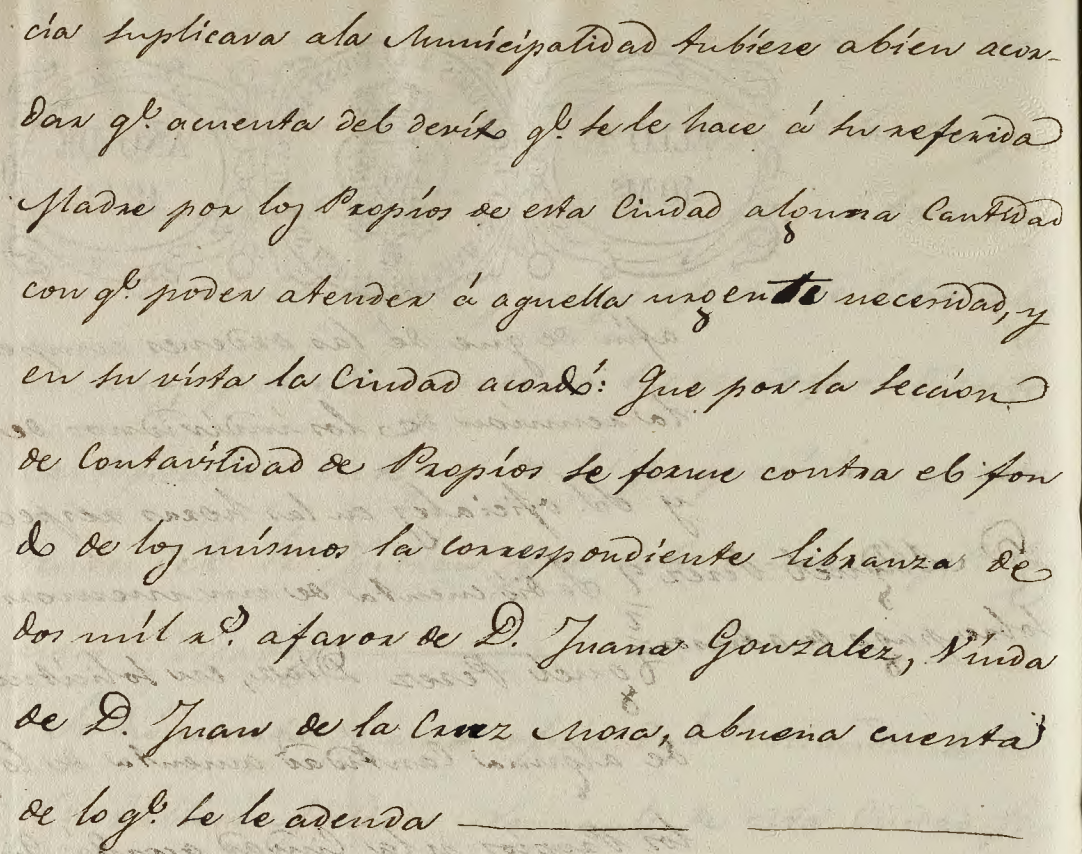 cía suplicava ala Municipalidad tubiese abien acor-
dar qe. acuenta del devíto qe. se le hace á su referida
Madre por los Propíos de esta Ciudad alguna Cantidad
con qe. poder atender á aquella urgente necesidad, y
en su vísta la Ciudad acordó: Que por la Seccion
de Contavílidad de Propíos se forme contra el fon
do de los mísmos la correspondíente libranza de
dos míl rs. afavor de D. Juana Gonzalez, Víuda
de D. Juan de la Cruz Mora, abuena cuenta
de lo qe. se le adeuda